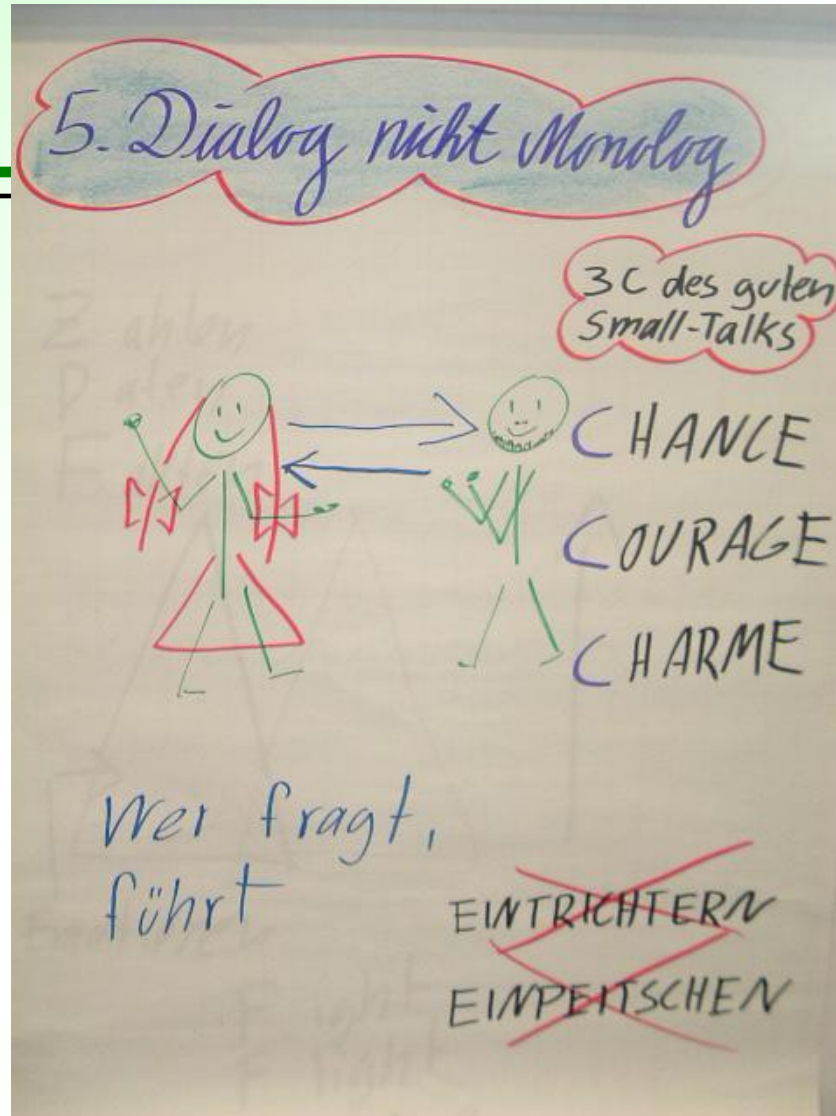 5. Dialog nicht Monolog
3C des guten
Small-Talks
CHANCE
COURAGE
CHARME
Wer fragt,
führt
EINTRICHTERN
EINPEITSCHEN
Zahlen
Daten
Fight
Flight